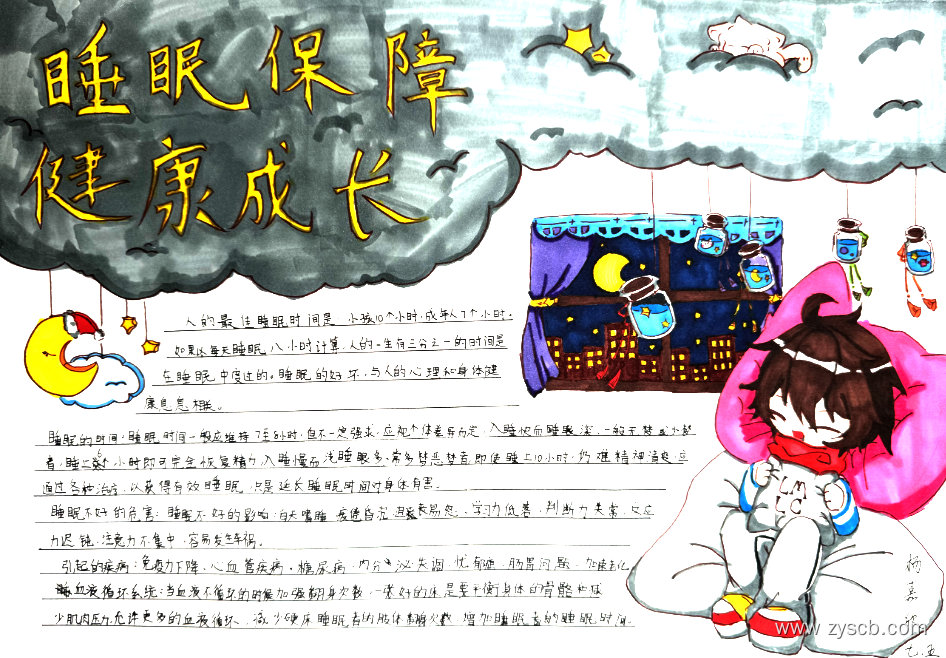 睡眠保障
健康成长
人的最佳睡眠时间是,小孩10个小时,成年人7个小时。
如果以每天睡眠八小时计算,人的一生有三分之一的时间是
在睡眠中度过的。睡眠的好坏,与人的心理和身体健
康息息相关。
睡眠的时间:睡眠时间一般应维持7至8小时,但不一定强求,应视个体差异而定,入睡快而睡眠深、一般无梦或少梦
者,睡上6个小时即可完全恢复精力,入睡慢而浅睡眠多、常多梦恶梦者,即使睡上10小时,仍难精神清爽,应
通过各种治疗,以获得有效睡眠,只是延长睡眠时间对身体有害。
睡眠不好的危害:睡眠不好的影响:白天嗜睡 疲倦昏沉 易怒、学习力低落,判断力失常,反应
力迟钝,注意力不集中,容易发生车祸。
引起的疾病:免疫力下降,心血管疾病,糖尿病,内分泌失调,忧郁症,肠胃问题,加速老化
血液循环系统:当血液不循环的时候加强翻身次数,一张好的床是要平衡身体的骨骼和减
少肌肉压力,允许更多的血液循环,减少硬床睡眠者的肢体翻次数,增加睡眠者的睡眠时间。
LMIC
杨
嘉
七.五
www.zyscb.com